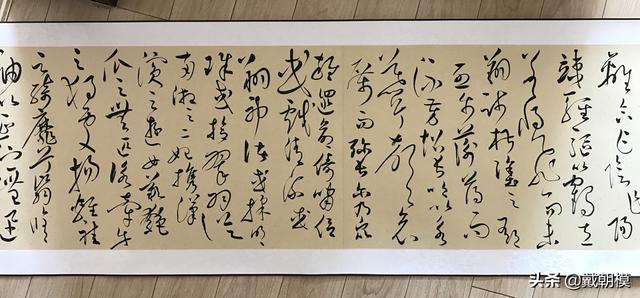 離合乍陰乍陽
竦輕軀以鶴立
若將飛而未
翔踐椒塗之郁
烈步蘅薄而
流芳超長吟以永
慕兮聲哀
厲而彌長爾乃眾
靈雜遝命儔嘯侶
或戲清流或
翔神渚或採明
珠或拾翠羽從
南湘之二妃攜漢
濱之遊女嘆匏
瓜之無匹詠牽牛
之獨處揚輕袿
之猗靡兮翳脩
袖以延佇體迅
头条 @戴朝模